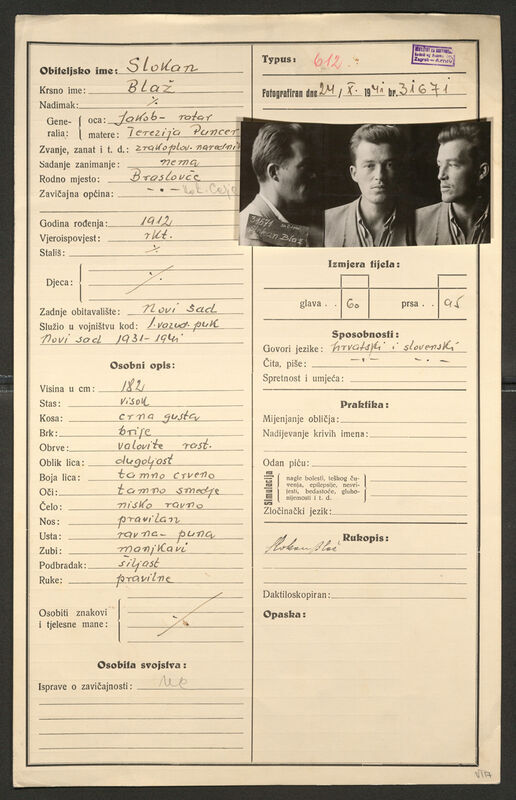 Obiteljsko ime: Slokan
Krsno ime: Blaž
Nadimak: ⁒
Gene-ralia:
oca: Jakob- ratar
matere: Terezija Puncer
Zvanje, zanat i t. d.: zrakoplov. narednik
Sadanje zanimanje: nema
Rodno mjesto: Braslovče
Zavičajna općina: -•-
Godina rođenja: 1912
Vjeroispovjest: rkt.
Stališ: ⁒
Djeca: ⁒
Zadnje obitavalište: Novi Sad
Služio u vojništvu kod: 1. vazd. puk
Novi sad 1931-1941
Osobni opis:
Visina u cm: 182
Stas: visok
Kosa: crna gusta
Brk: brije
Obrve: valovite rast.
Oblik lica: dugoljast
Boja lica: tamno crveno
Oči: tamno smedje
Čelo: nisko ravno
Nos: pravilan
Usta: ravna- puna
Zubi: manjkavi
Podbradak: šiljast
Ruke: pravilne
Osobiti znakovi
i tjelesne mane: ⁒
Osobita svojstva:
Isprave o zavičajnosti: ne
Typus: 612
Fotografiran dne 24, X. 1941 br. 31671
31671
Slokan Blaž
Izmjera tijela:
glava . . 60 prsa . . 95
Sposobnosti:
Govori jezike: hrvatski i slovenski
Čita, piše: -•- -•-
Spretnost i umjeća:
Praktika:
Mijenjanje obličja:
Nadijevanje krivih imena:
Odan piću:
Simulacija
nagle bolesti, teškog ču-
venja, epilepsije, nesvi-
jesti, bedastoće, gluho-
nijemosti i t. d.
Zločinački jezik:
Rukopis:
Slokan Blaž
Daktiloskopiran:
Opaska: